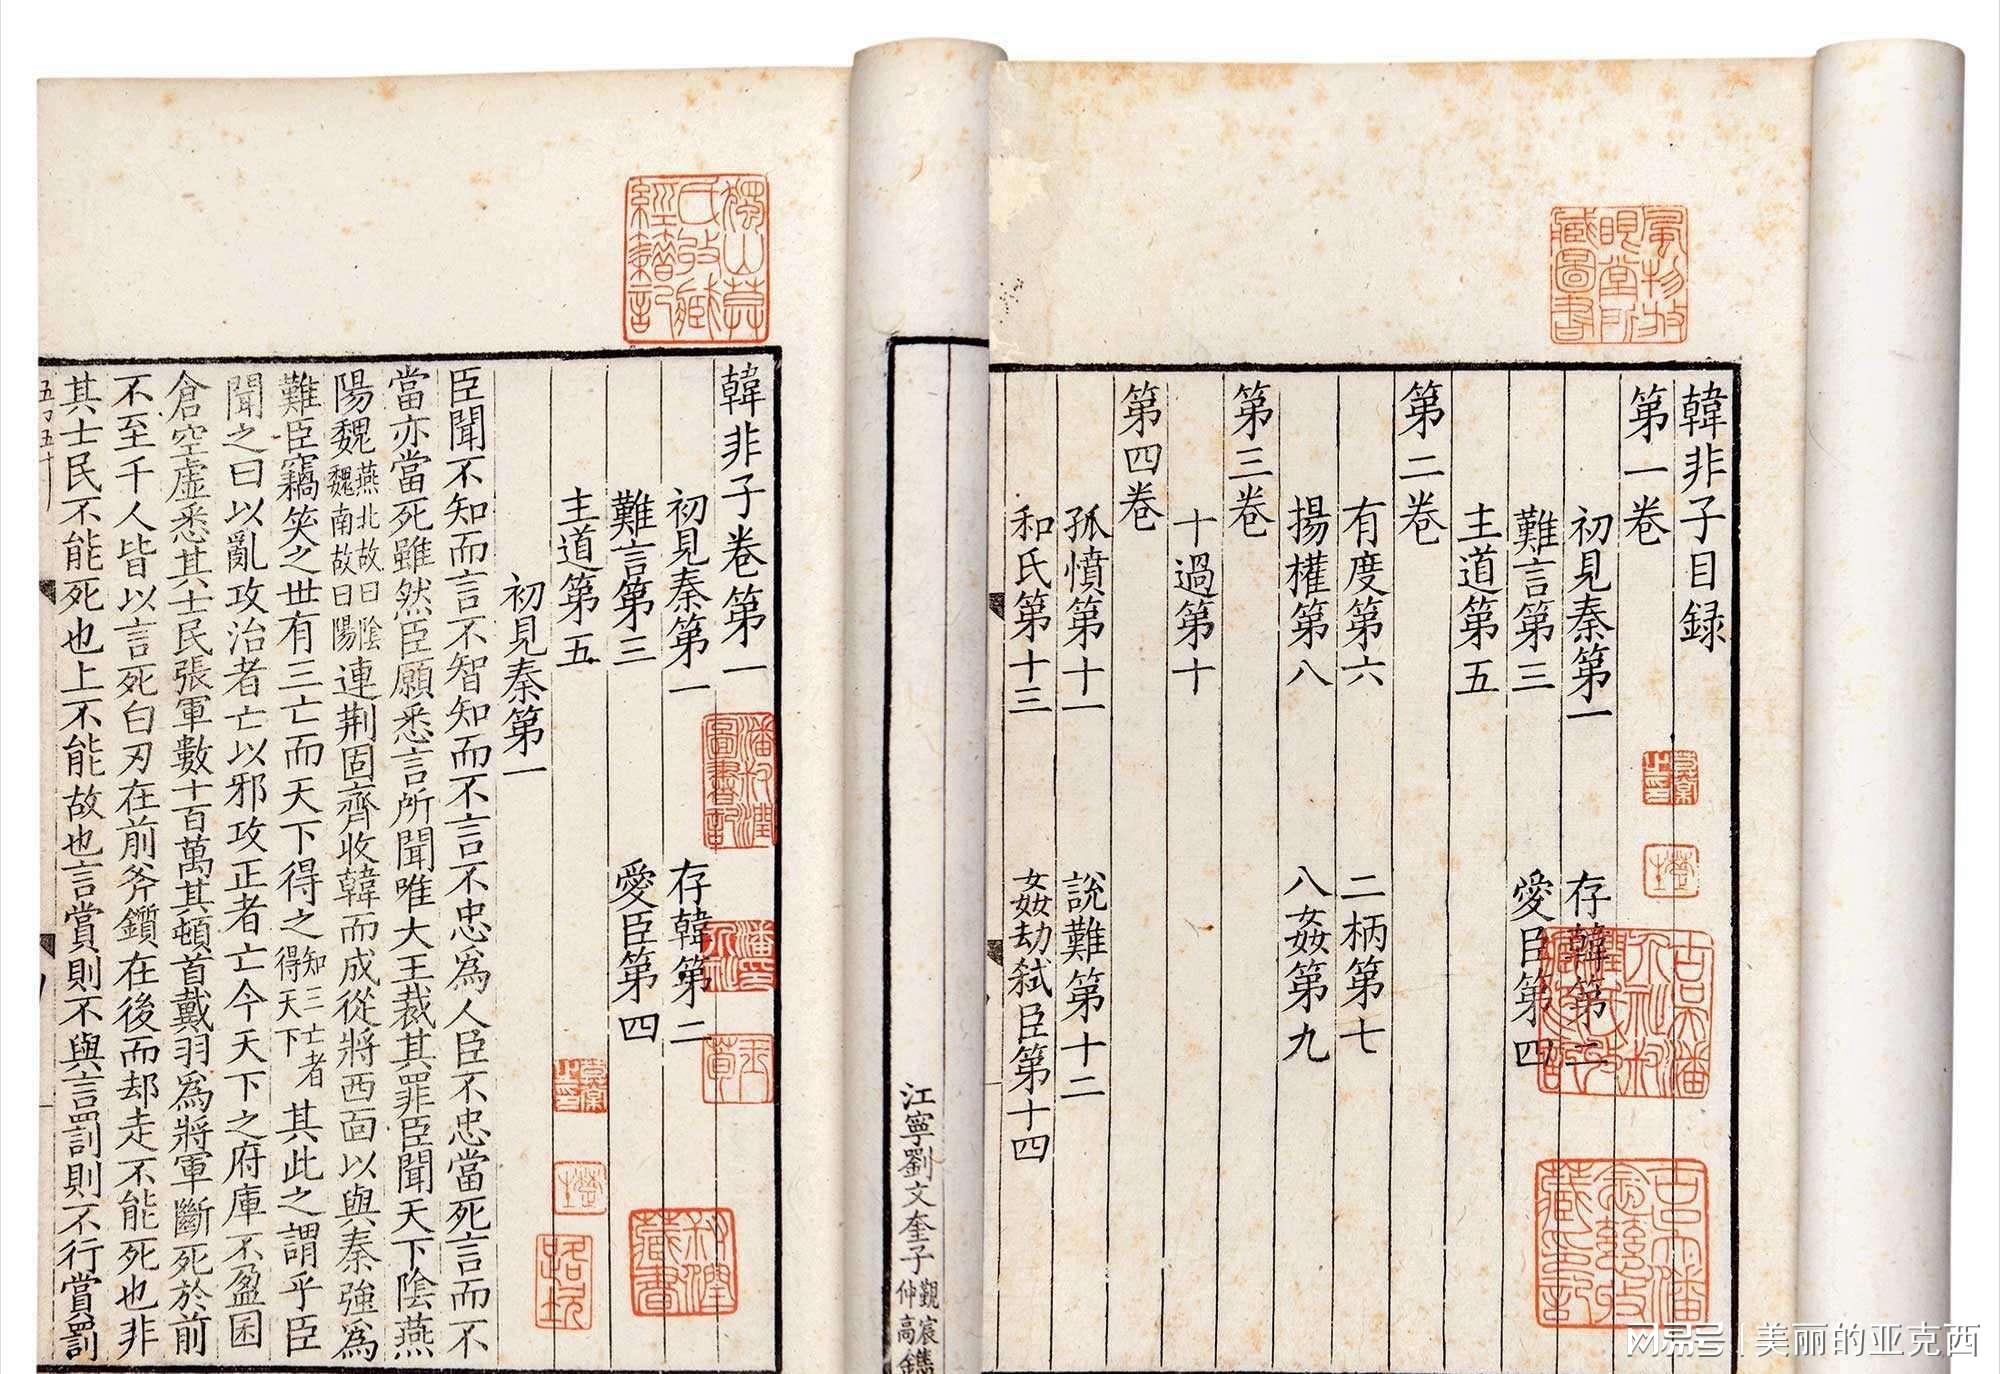 韓非子目録
第一卷
初見秦第一　存韓第二
難言第三　愛臣第四
主道第五
第二卷
有度第六　二柄第七
揚權第八　八姦第九
第三卷
十過第十
第四卷
孤憤第十一　說難第十二
和氏第十三　姦劫弑臣第十四
江寧劉文奎子觀宸仲高鐫
韓非子卷第一
初見秦第一　存韓第二
難言第三　愛臣第四
主道第五
初見秦第一
臣聞不知而言不智知而不言不忠為人臣不忠當死言而不
當亦當死雖然臣願悉言所聞唯大王裁其罪臣聞天下陰燕
陽魏燕北故曰陰魏南故曰陽連荆固齊收韓而成從將西面以與秦強為
難臣竊笑之世有三亡而天下得之知三亡者得天下其此之謂乎臣
聞之曰以亂攻治者亡以邪攻正者亡今天下之府庫不盈囷
倉空虛悉其士民張軍數十百萬其頓首戴羽為將軍斷死於前
不至千人皆以言死白刃在前斧鑕在後而却走不能死也非
其士民不能死也上不能故也言賞則不與言罰則不行賞罰
獨山莫氏攷藏經籍記
風物放眼堂所藏圖書
潘叔潤圖書記
潘介祉
叔潤藏書
古吳潘介祉叔潤氏收藏印記
古吳潘念慈收藏印記
莫棠之印
网易号 | 美丽的亚克西